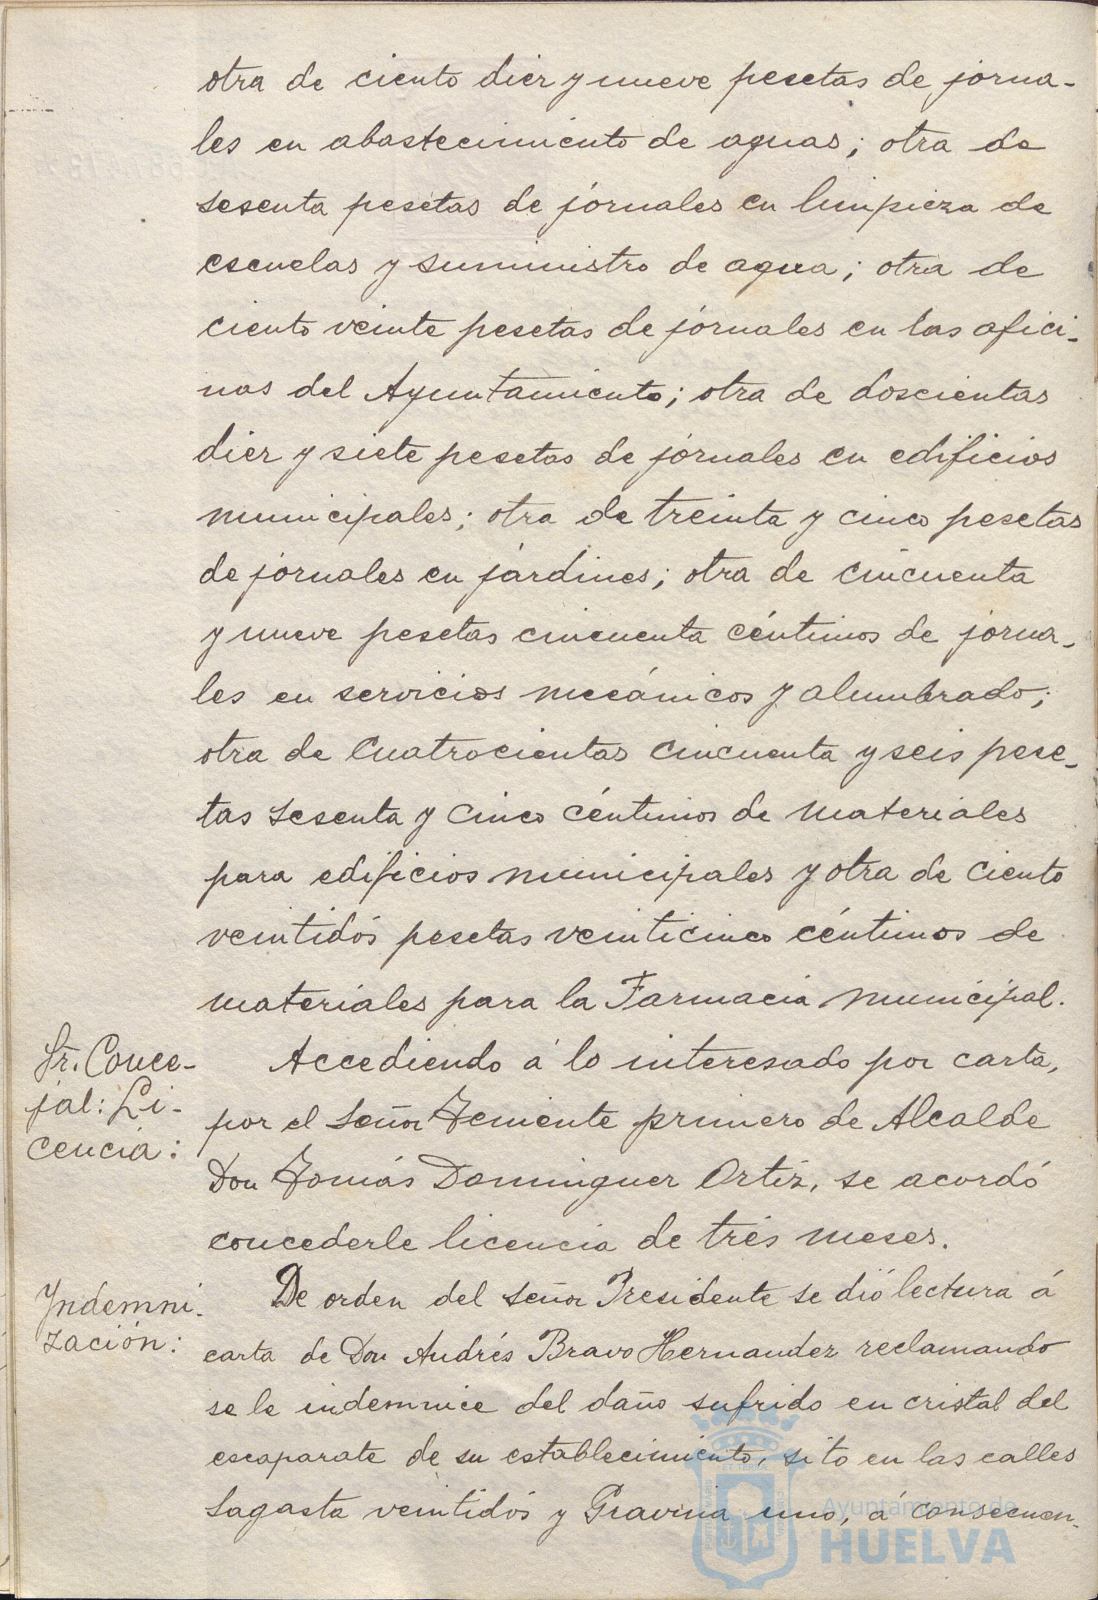 otra de ciento diez y nueve pesetas de jorna-
les en abastecimiento de aguas; otra de
sesenta pesetas de jornales en limpieza de
escuelas y suministro de agua; otra de
ciento veinte pesetas de jornales en las ofici-
nas del Ayuntamiento; otra de doscientas
diez y siete pesetas de jornales en edificios
municipales; otra de treinta y cinco pesetas
de jornales en jardines; otra de cincuenta
y nueve pesetas cincuenta céntimos de jorna-
les en servicios mecánicos y alumbrado;
otra de cuatrocientas cincuenta y seis pese-
tas sesenta y cinco céntimos de materiales
para edificios municipales y otra de ciento
veintidós pesetas veinticinco céntimos de
materiales para la Farmacia municipal.
Sr. Conce-
jal: Li-
cencia:
Accediendo á lo interesado por carta,
por el Señor Teniente primero de Alcalde
Don Tomás Dominguez Ortiz, se acordó
concederle licencia de tres meses.
Yndemni-
zación:
De orden del Señor Presidente se dió lectura á
carta de Don Andrés Bravo Hernandez reclamando
se le indemnice del daño sufrido en cristal del
escaparate de su establecimiento, sito en las calles
Sagasta veintidós y Gravina uno, á consecuen-
Ayuntamiento de
HUELVA